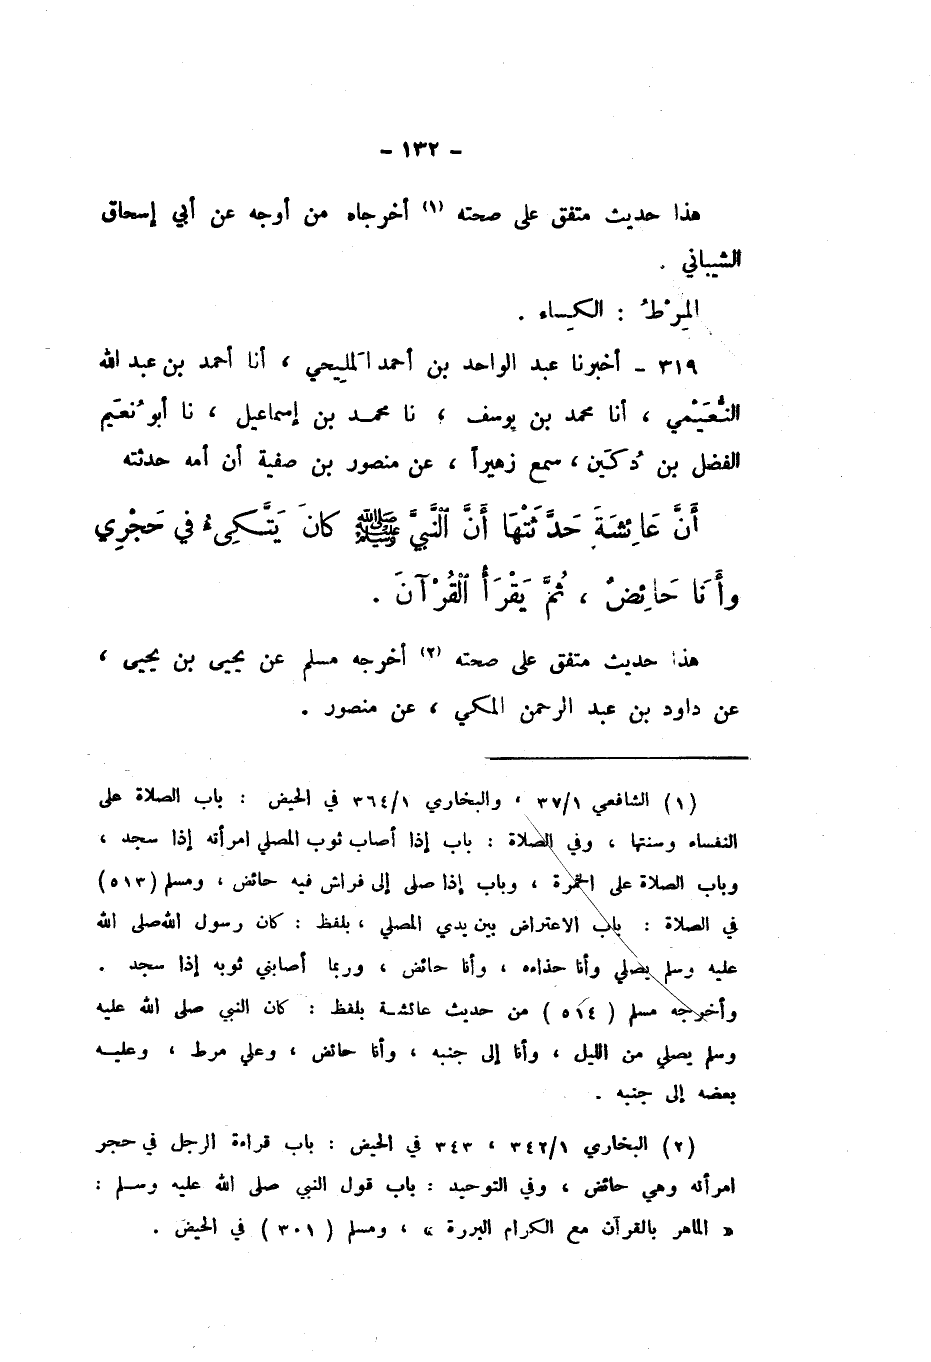 - ١٣٢ -
هذا حديث متفق على صحته (١) أخرجاه من أوجه عن أبي إسحاق
الشيباني .
المِرْطُ : الكساء .
٣١٩ - أخبرنا عبد الواحد بن أحمد المَلِيحي ، أنا أحمد بن عبد الله
النُّعَيْمي ، أنا محمد بن يوسف ، نا محمد بن إسماعيل ، نا أبو نُعَيم
الفضل بن دُكَين ، سمع زهيراً ، عن منصور بن صفية أن أمه حدثته
أَنَّ عَائِشَةَ حَدَّثَتْهَا أَنَّ ٱلنَّبِيَّ ﷺ كَانَ يَتَّكِىءُ في حَجْرِي
وأَنَا حَائِضٌ ، ثُمَّ يَقْرَأُ ٱلْقُرْآنَ .
هذا حديث متفق على صحته (٢) أخرجه مسلم عن يحيى بن يحيى ،
عن داود بن عبد الرحمن المكي ، عن منصور .
(١) الشافعي ٣٧/١ ، والبخاري ٣٦٤/١ في الحيض : باب الصلاة على
النفساء وسنتها ، وفي الصلاة : باب إذا أصاب ثوب المصلي امرأته إذا سجد ،
وباب الصلاة على الخمرة ، وباب إذا صلى إلى فراش فيه حائض ، ومسلم (٥١٣)
في الصلاة : باب الاعتراض بين يدي المصلي ، بلفظ : كان رسول الله صلى الله
عليه وسلم يصلي وأنا حذاءه ، وأنا حائض ، وربما أصابني ثوبه إذا سجد .
وأخرجه مسلم ( ٥١٤ ) من حديث عائشة بلفظ : كان النبي صلى الله عليه
وسلم يصلي من الليل ، وأنا إلى جنبه ، وأنا حائض ، وعلي مرط ، وعليه
بعضه إلى جنبه .
(٢) البخاري ٣٤٢/١ ، ٣٤٣ في الحيض : باب قراءة الرجل في حجر
امرأته وهي حائض ، وفي التوحيد : باب قول النبي صلى الله عليه وسلم :
« الماهر بالقرآن مع الكرام البررة » ، ومسلم ( ٣٠١ ) في الحيض .